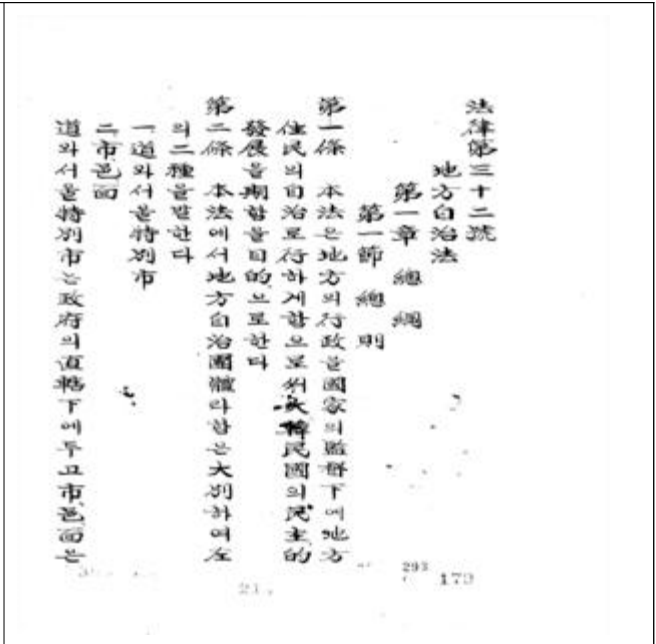 法律第三十二號
地方自治法
第一章 總綱
第一節 總則
第一條 本法은地方의行政을國家의監督下에地方
住民의自治로行하게함으로써大韓民國의民主的
發展을期함을目的으로한다
第二條 本法에서地方自治團體라함은大別하여左
의二種을말한다
一 道와서울特別市
二 市邑面
道와서울特別市는政府의直轄下에두고市、邑、面은
293
179